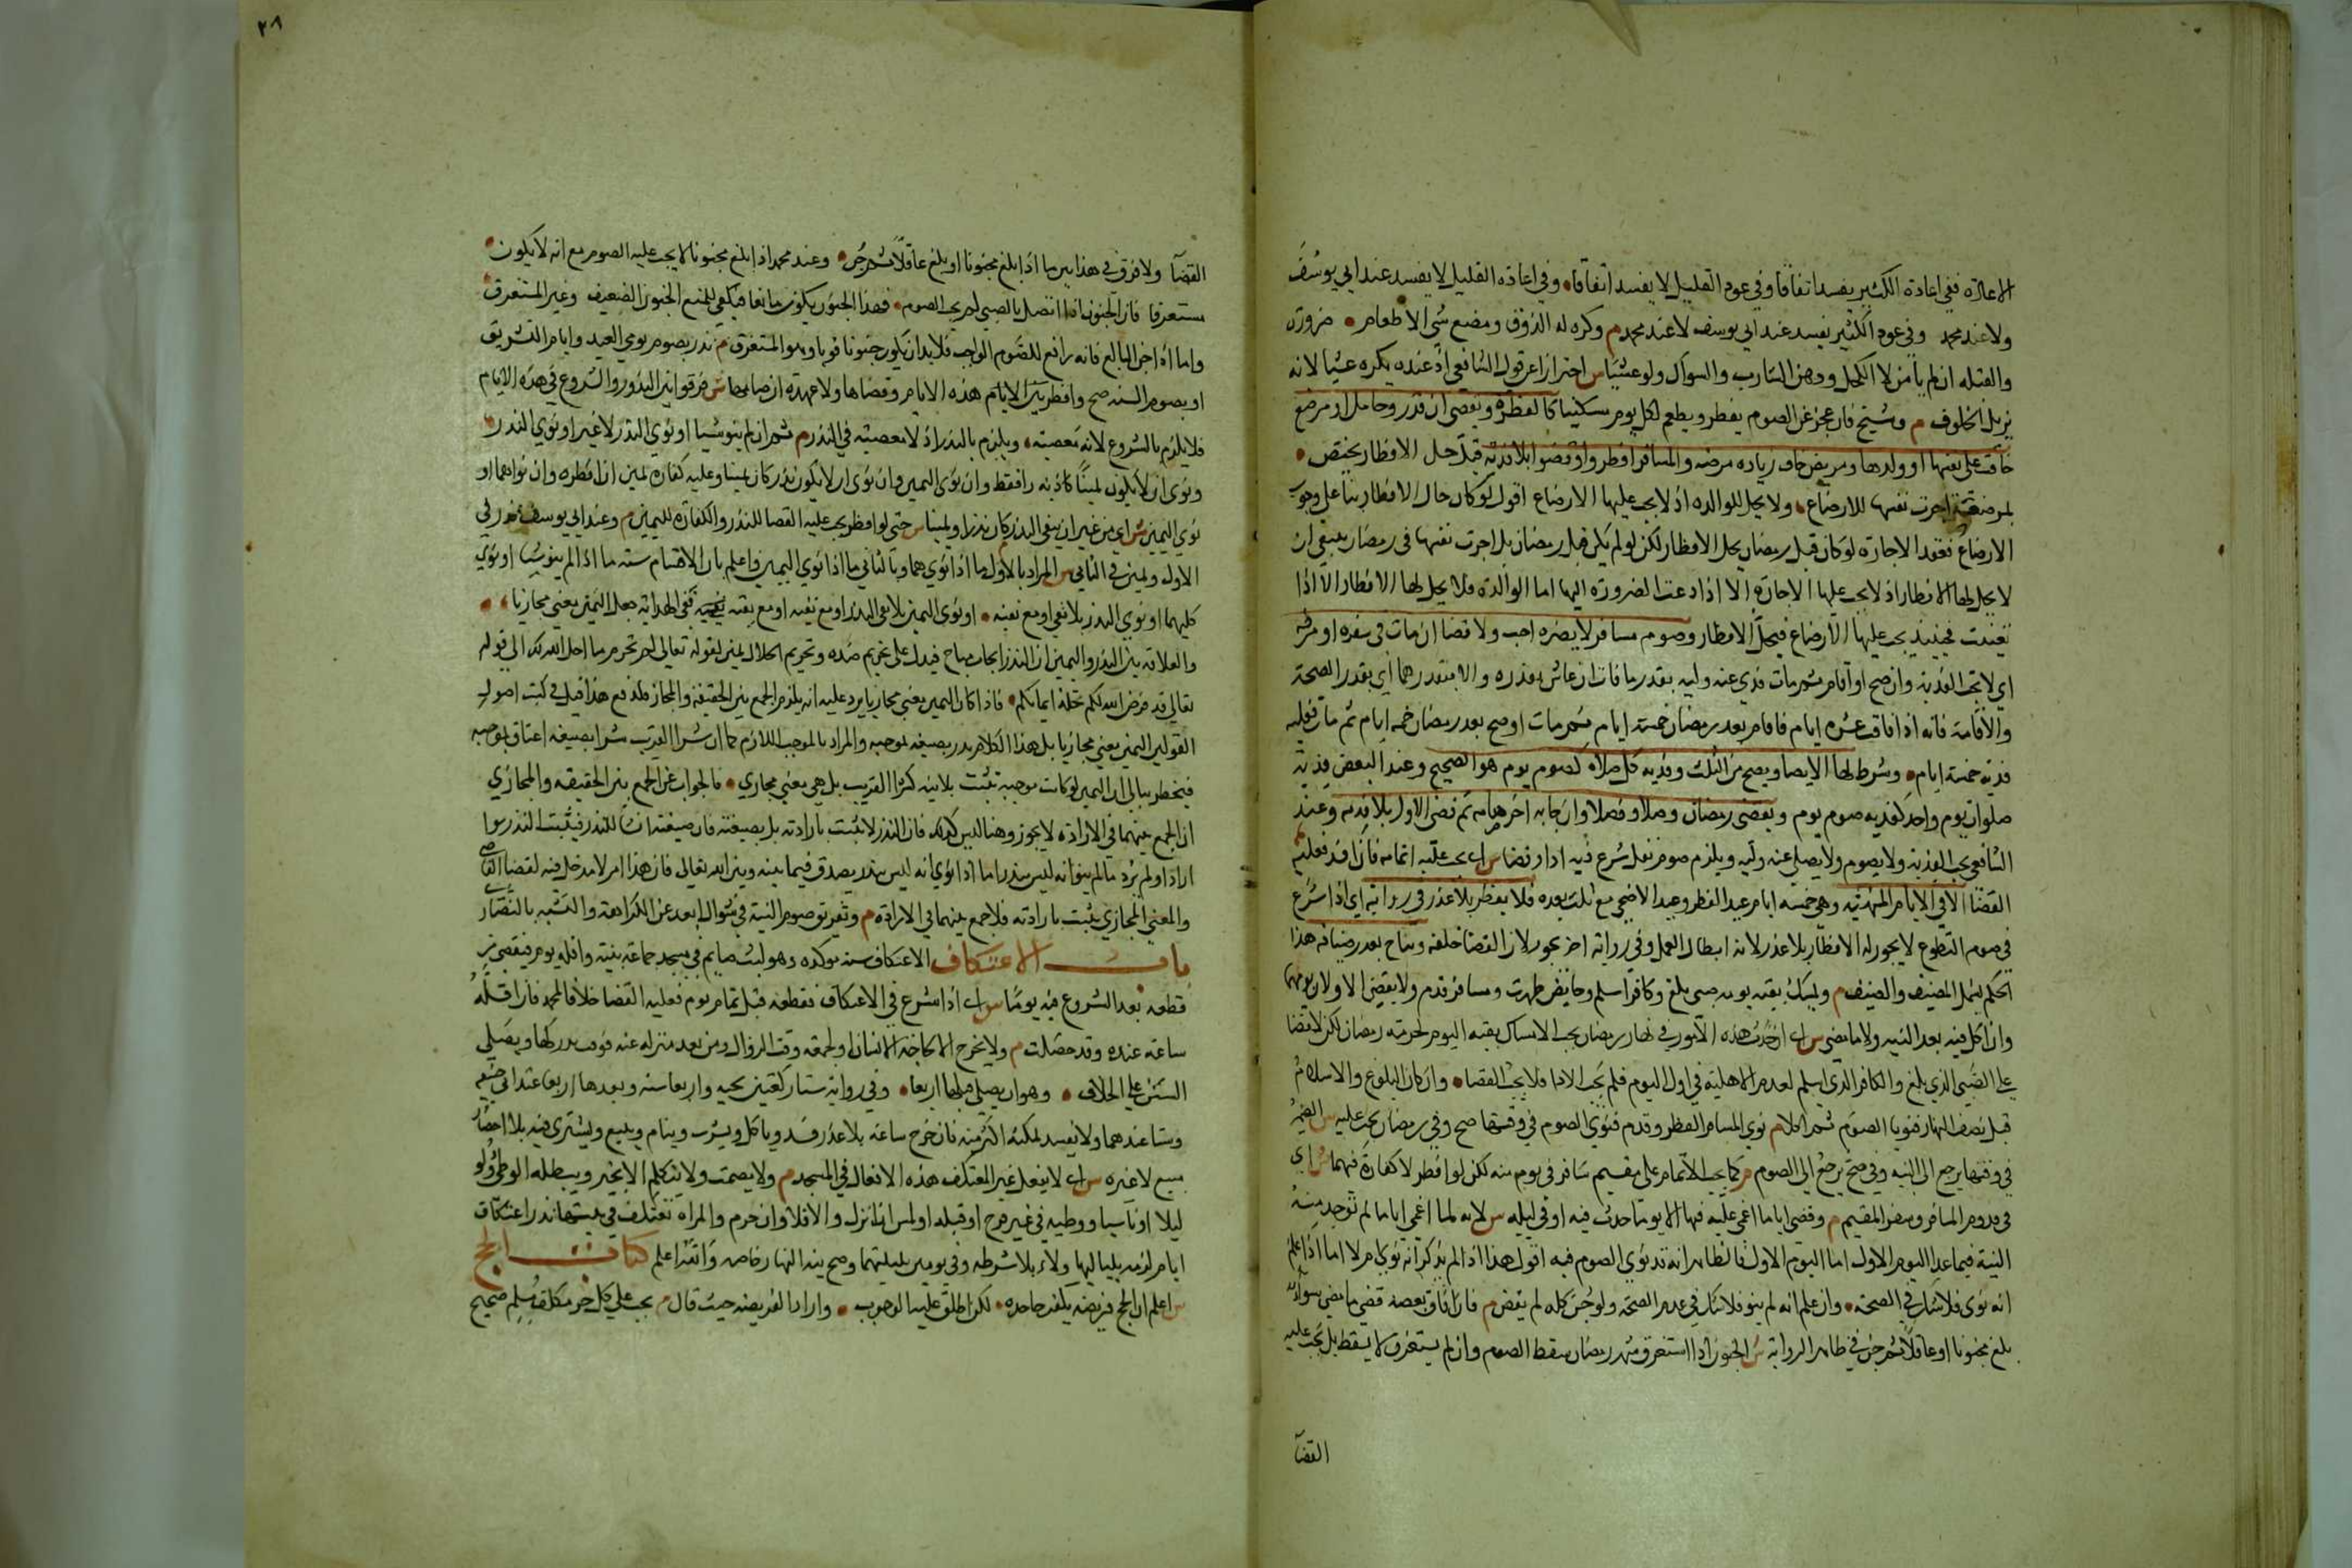 الاعادة ففي اعادة الكثير يفسد اتفاقا وفي عود القليل لا يفسد اتفاقا وفي اعادة القليل لا يفسد عند ابي يوسف
ولا عند محمد وفي عود الكثير يفسد عند ابي يوسف لا عند محمد م وكره له الذوق ومضغ شي الا طعام ضرورة
والقبلة ان لم يأمن لا الكحل ودهن الشارب والسواك ولو عشيا س احترازا عن قول الشافعي اذ عنده يكره عشيا لانه
يزيل الخلوف م وشيخ فان عجز عن الصوم يفطر ويطعم لكل يوم مسكينا كالفطرة ويقضي ان قدر وحامل او مرضع
خافت على نفسها او ولدها ومريض خاف زيادة مرضه والمسافر افطروا وقضوا بلا فدية قيل حل الافطار يختص
بمرضعة اجرت نفسها للارضاع ولا يحل للوالدة اذ لا يجب عليها الارضاع اقول لو كان حال الافطار بناء على وجوب
الارضاع فعقد الاجارة لو كان قبل رمضان يحل الافطار لكن لو لم يكن قبل رمضان بل اجرت نفسها في رمضان ينبغي ان
لا يحل لها الافطار اذ لا يجب عليها الاجارة الا اذا دعت الضرورة اليها اما الوالدة فلا يحل لها الافطار الا اذا
تعينت فحينئذ يجب عليها الارضاع فيحل الافطار وصوم مسافر لا يضره احب ولا قضا ان مات في سفره او مرضه
اي لا تجب الفدية وان صح او اقام ثم مات فدي عنه وليه بقدر ما فات ان عاش بقدره والا بقدرهما اي بقدر الصحة
والاقامة فانه اذا فات عشرة ايام فاقام بعد رمضان خمسة ايام ثم مات او صح بعد رمضان خمسة ايام ثم مات فعليه
فدية خمسة ايام وشرط لها الايصا ويصح من الثلث وفدية كل صلاة كصوم يوم هو الصحيح وعند البعض فدية
صلوات يوم واحد كفدية صوم يوم ويقضي رمضان وصلا وفصلا وان جا به اخر صامه ثم قضى الاول بلا فدية وعند
الشافعي يجب الفدية ولا يصوم ولا يصلي عنه وليه ويلزم صوم نفل شرع فيه ادا وقضا س اي يجب عليه اتمامه فان افسد فعليه
القضا الا في الايام المنهية وهي خمسة ايام عيد الفطر وعيد الاضحى مع ثلث بعده فلا يفطر بلا عذر في رواية اي اذا شرع
في صوم التطوع لا يجوز له الافطار بلا عذر لانه ابطال العمل وفي رواية اخر يجوز لان القضا خلفه ويباح بعذر ضيافة هذا
الحكم يشمل المضيف والضيف م ويمسك بقية يومه صبي بلغ وكافر اسلم وحايض طهرت ومسافر قدم ولا يقضي الاولان يومهما
وان اكل فيه بعد النية ولا ما مضى س اي ان حدث هذه الامور في نهار رمضان يجب الامساك بقية اليوم لحرمة رمضان لكن لا قضا
على الصبي الذي بلغ والكافر الذي اسلم لعدم الاهلية في اول اليوم فلم يجب الادا فلا يجب القضا وان كان البلوغ والاسلام
قبل نصف النهار فنويا الصوم ثم اكلا م نوى المسافر الفطر وقدم فنوى الصوم في وقتها صح وفي رمضان يجب عليه س الضمير
في وقتها يرجع الى النية وفي صح يرجع الى الصوم م كما يجب الاتمام على مقيم سافر في يوم منه لكن لو افطر لا كفارة فيهما س اي
في قدوم المسافر وسفر المقيم م وقضى اياما اغمي عليه فيها الا يوما حدث فيه او في ليله س لانه لما اغمي اياما لم توجد منه
النية فيما عدا اليوم الاول اما اليوم الاول فالظاهر انه قد نوى الصوم فيه اقول هذا اذا لم يذكر انه نوى ام لا اما اذا علم
انه نوى فلا شك في الصحة وان علم انه لم ينو فلا شك في عدم الصحة ولو جن كله لم يقض م فان افاق بعضه قضى ما مضى سواء
بلغ مجنونا او عاقلا ثم جن في ظاهر الرواية س الجنون اذا استغرق شهر رمضان سقط الصوم وان لم يستغرق لا يسقط بل يجب عليه
القضا
٢٨
القضا ولا فرق في هذا بين ما اذا بلغ مجنونا او بلغ عاقلا ثم جن وعند محمد اذا بلغ مجنونا لا يجب عليه الصوم مع انه لا يكون
مستغرقا فان الجنون اذا اتصل بالصبي لم يجب الصوم فهذا الجنون يكون مانعا فيكفي للمنع الجنون الضعيف وغير المستغرق
واما اذا جن البالغ فانه رافع للصوم الواجب فلا بد ان يكون جنونا قويا وهو المستغرق م نذر بصوم يومي العيد وايام التشريق
او بصوم السنة صح وافطر هذه الايام وقضاها ولا عهدة ان صامها س فرقوا بين النذر والشروع في هذه الايام
فلا يلزم بالشروع لانه معصية ويلزم بالنذر اذ لا معصية في النذر م ثم ان لم ينو شيا او نوى النذر لا غير او نوى النذر
ونوى ان لا يكون يمينا كان نذرا فقط وان نوى اليمين وان نوى ان لا يكون نذر كان يمينا وعليه كفارة يمين ان افطره وان نواهما او
نوى اليمين س اي من غير ان ينفي النذر كان نذرا ويمينا س حتى لو افطر يجب عليه القضا للنذر والكفارة لليمين م وعند ابي يوسف نذر في
الاول ويمين في الثاني س المراد بالاول ما اذا نوى هما وبالثاني ما اذا نوى اليمين واعلم بان الاقسام ستة ما اذا لم ينو شيا او نوى
كليهما او نوى النذر بلا نفي او مع نفيه او نوى اليمين بلا نفي النذر او مع نفيه ففي الهداية جعل اليمين معنى مجازيا
والعلاقة بين النذر واليمين ان النذر ايجاب مباح فيدل على تحريم ضده وتحريم الحلال يمين لقوله تعالى لم تحرم ما احل الله لك الى قوله
تعالى قد فرض الله لكم تحلة ايمانكم فاذا كان اليمين معنى مجازيا يرد عليه انه يلزم الجمع بين الحقيقة والمجاز فلدفع هذا قيل في كتب اصول
اليمين معنى مجازيا بل هذا الكلام نذر بصيغته يمين بموجبه والمراد بالموجب اللازم كما ان شرا القريب شرا بصيغته اعتاق بموجبه
فيخطر ببالي ان اليمين لو كانت موجبة تثبت بلا نية كشرا القريب بل هي معنى مجازي فالجواب عن الجمع بين الحقيقة والمجازي
ان الجمع بينهما في الارادة لا يجوز وهنا ليس كذلك فان النذر لا يثبت بارادته بل بصيغته فان صيغته انشا للنذر فيثبت النذر سوا
اراد او لم يرد ما لم ينو انه ليس بنذر اما اذا نوى انه ليس بنذر يصدق فيما بينه وبين الله تعالى فان هذا امر لا مدخل فيه لقضا القاضي
والمعنى المجازي يثبت بارادته فلا جمع بينهما في الارادة م وتفريق صوم الستة في شوال ابعد عن الكراهة والتشبه بالنصارى
باب الاعتكاف الاعتكاف سنة موكدة وهو لبث صايم في مسجد جماعة بنيته واقله يوم فيقضي من
قطعه بعد الشروع فيه يوما س اي اذا شرع في الاعتكاف فقطعه قبل تمام يوم فعليه القضا خلافا لمحمد فان اقله
ساعة عنده وقد حصلت م ولا يخرج الا لحاجة الانسان او لجمعة وقت الزوال ومن بعد منزله عنه فوقت يدركها ويصلي
السنن على الخلاف وهو ان يصلي قبلها اربعا وفي رواية ستا ركعتين تحية واربعا سنة وبعدها اربعا عند ابي حنيفة
وستا عندهما ولا يفسد بمكثه اكثر منه فان خرج ساعة بلا عذر فسد وياكل ويشرب وينام ويبيع ويشترى فيه بلا احضار
مبيع لا غيره س اي لا يفعل غير المعتكف هذه الافعال في المسجد م ولا يصمت ولا يتكلم الا بخير ويبطله الوطي ولو
ليلا او ناسيا ووطيه في غير فرج او قبلة او لمس ان انزل والا فلا وان حرم والمراة تعتكف في بيتها نذر اعتكاف
ايام لزمه بلياليها ولاء بلا شرطه وفي يومين بليلتهما وصح نية النهار خاصة والله اعلم كتاب الحج
س اعلم ان الحج فريضة يكفر جاحده لكن اطلق عليه الوجوب واراد الفريضة حيث قال م يجب على كل حر مكلف مسلم صحيح